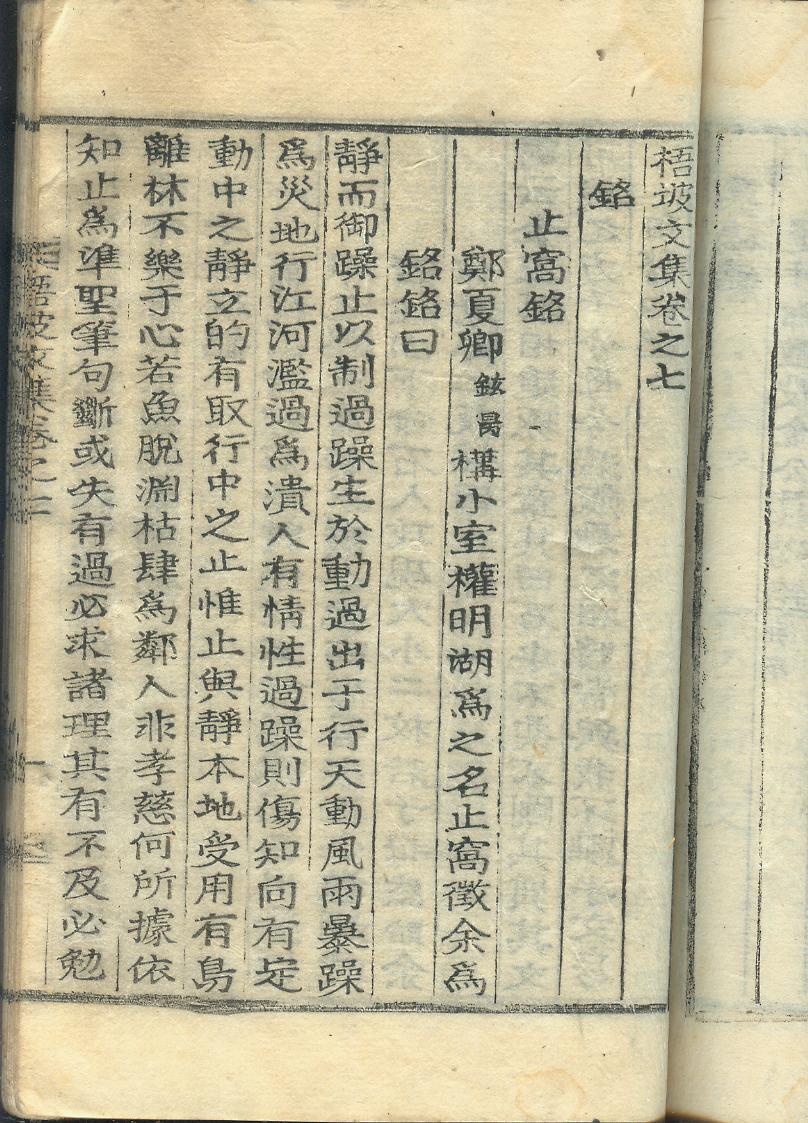 梧坡文集卷之七
銘
止窩銘
鄭夏卿鉉昺構小室權明湖爲之名止窩徵余爲
銘銘曰
靜而御躁止以制過躁生於動過出于行天動風雨暴躁
爲災地行江河濫過爲潰人有情性過躁則傷知向有定
動中之靜立的有取行中之止惟止與靜本地受用有鳥
離林不樂于心若魚脫淵枯肆爲鄰人非孝慈何所據依
知止爲準聖筆句斷或失有過必求諸理其有不及必勉
梧坡文集卷之七
一